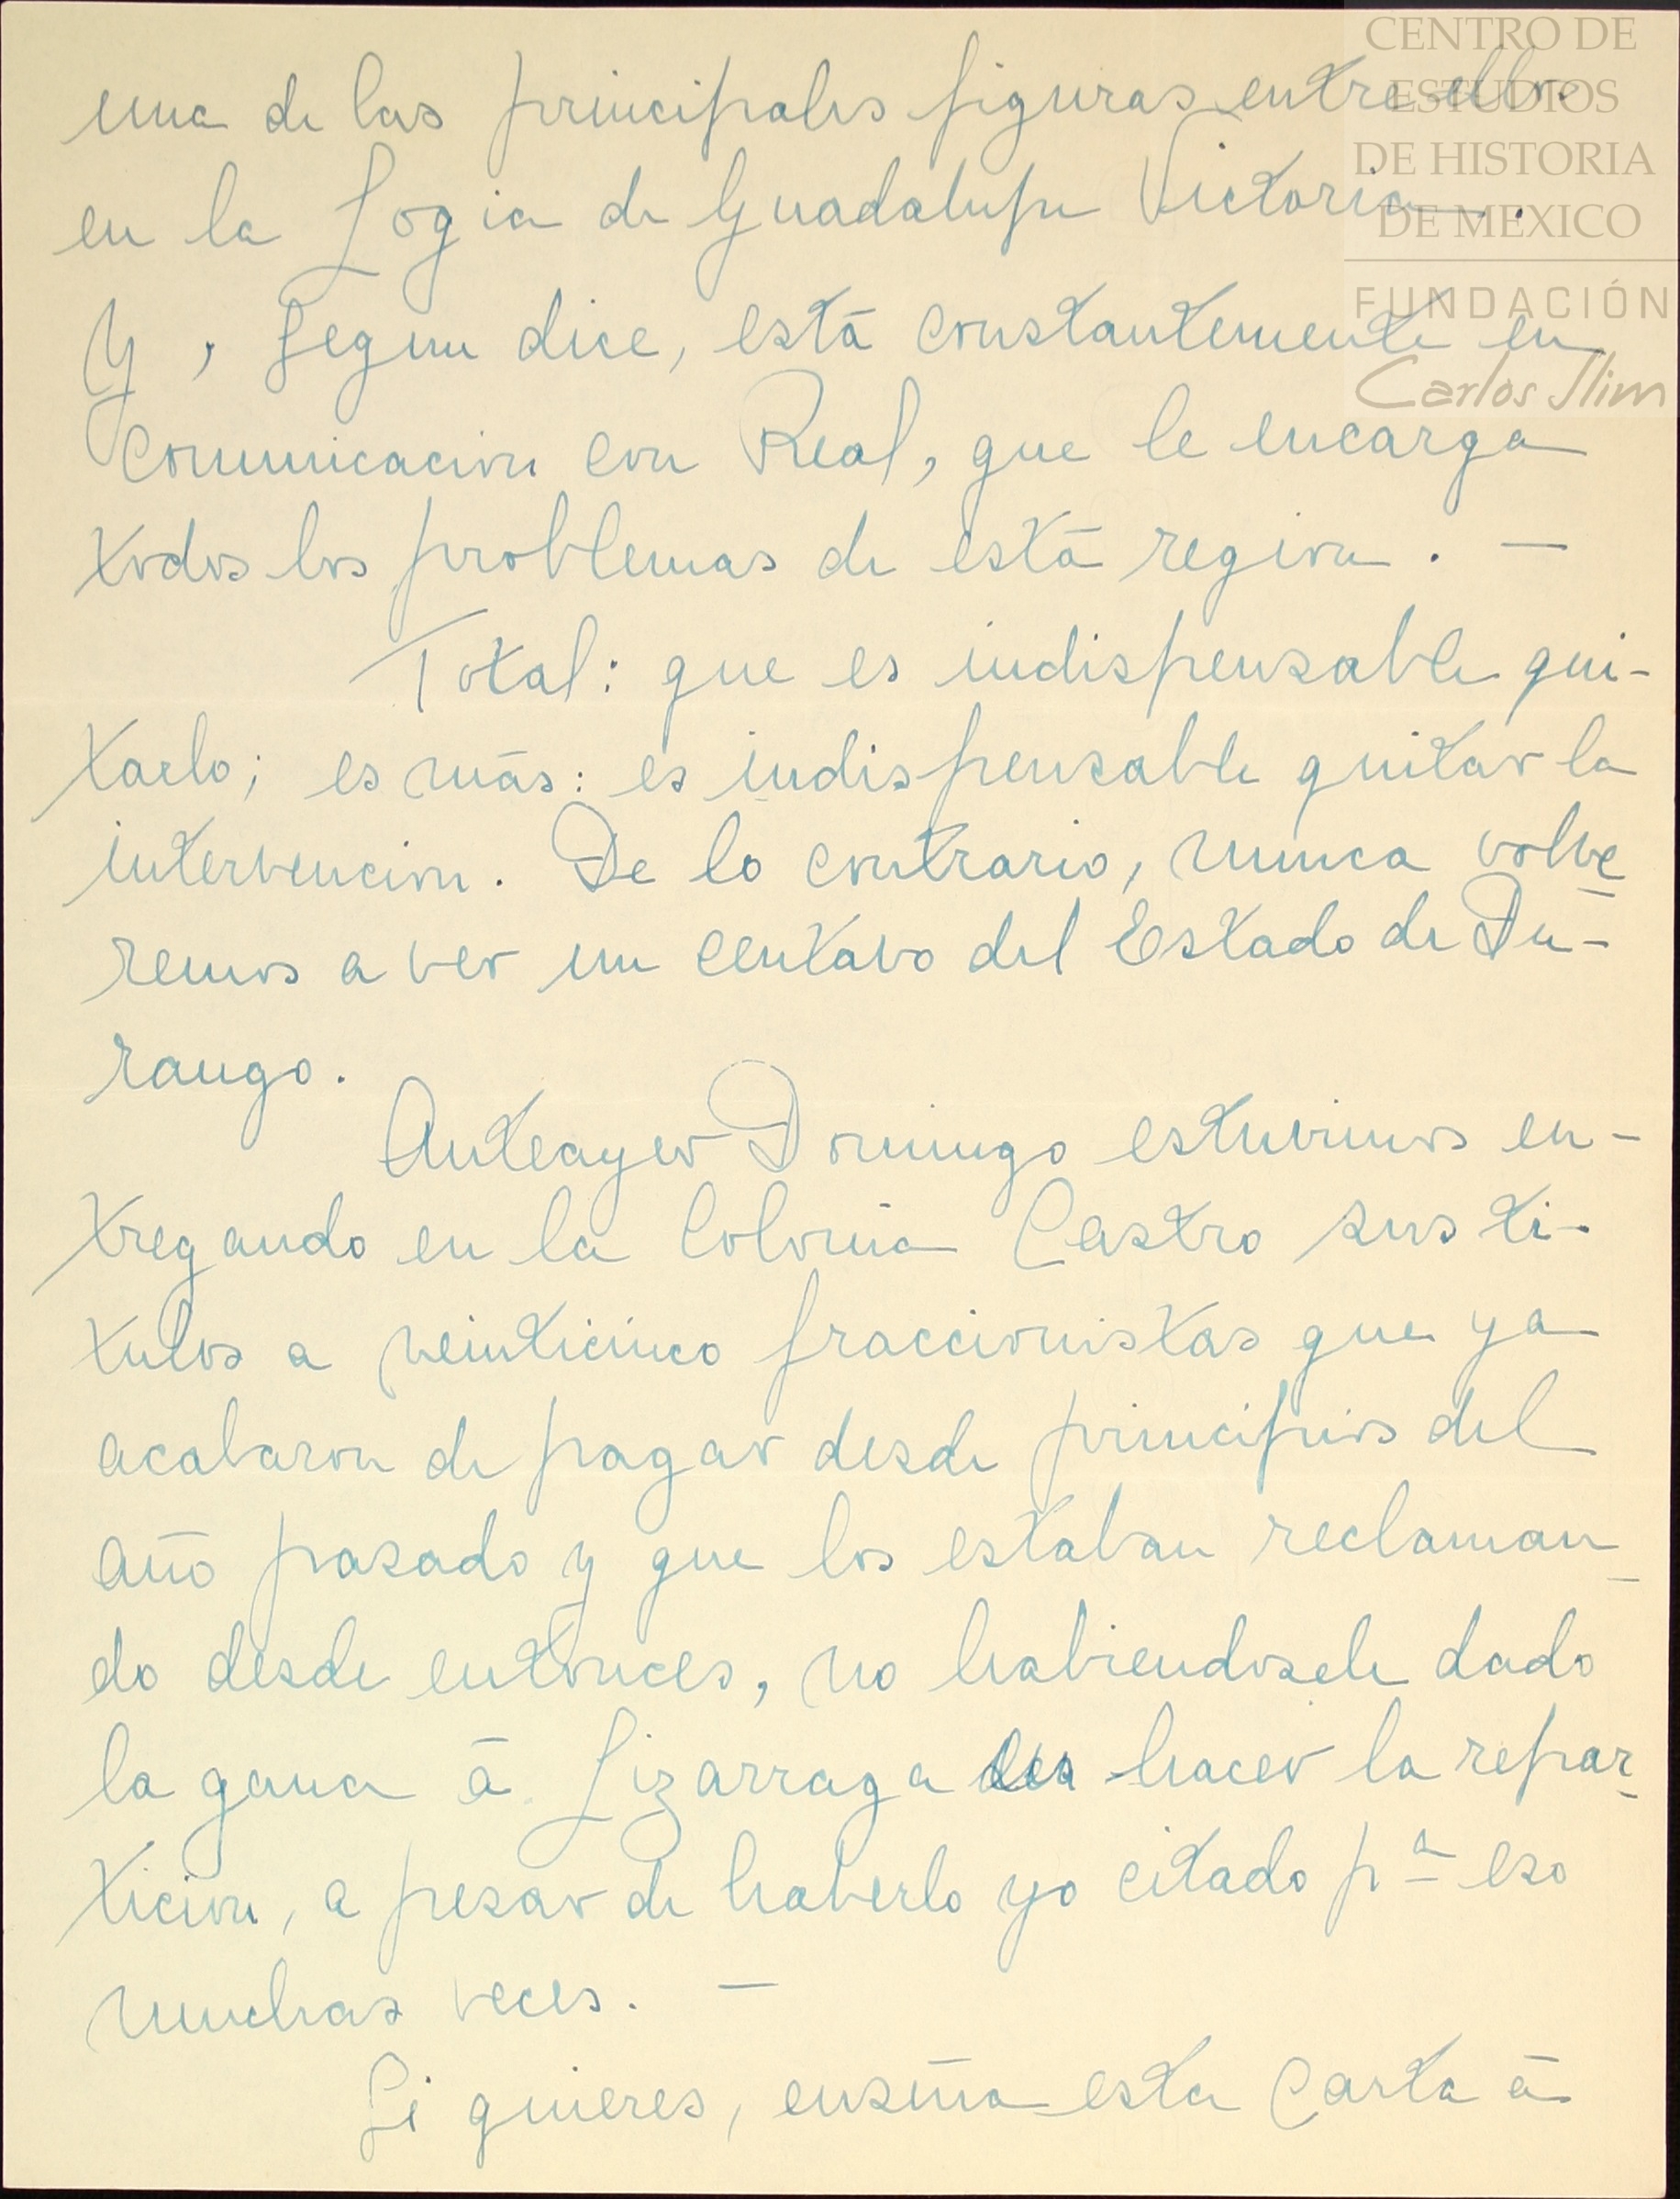 una de las principales figuras entre ellos
en la Logia de Guadalupe Victoria.
Y, Segun dice, está constantemente en
comunicacion con Real, que le encarga
todos los problemas de está region. —
Total: que es indispensable qui-
tarlo; es más: es indispensable quitar la
intervencion. De lo contrario, nunca volve
remos a ver un centavo del Estado de Du-
rango.
Anteayer Domingo estuvimos en-
tregando en la Colonia Castro sus ti-
tulos a veinticinco fraccionistas que ya
acabaron de pagar desde principios del
año pasado y que los estaban reclaman-
do desde entonces, no habiendosele dado
la gana á Lizarraga hacer la repar-
ticion, a pesar de haberlo yo citado pª eso
muchas veces. —
Si quieres, enseña esta carta á
CENTRO DE
ESTUDIOS
DE HISTORIA
DE MEXICO
FUNDACIÓN
Carlos Slim